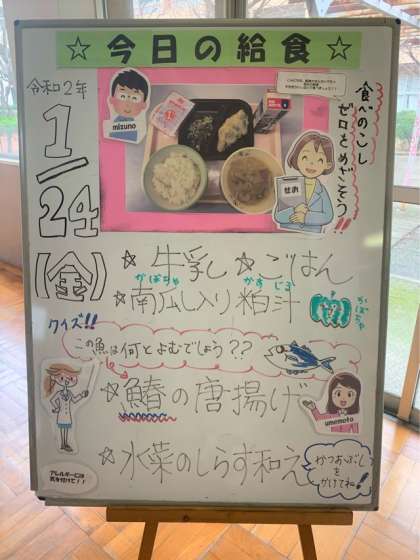 ☆今日の給食☆
令和2年
1/24
(金)
mizuno
せお
食べのこし
ゼロをめざそう!!
☆牛乳 ☆ごはん
かぼちゃ かすじる
☆南瓜入り粕汁
かぼちゃ
クイズ!!
この魚は何とよむでしょう??
☆鰆の唐揚げ
umemoto
☆水菜のしらす和え
かつおぶし
を
かけてね!
アレルギーには
気を付けて!!